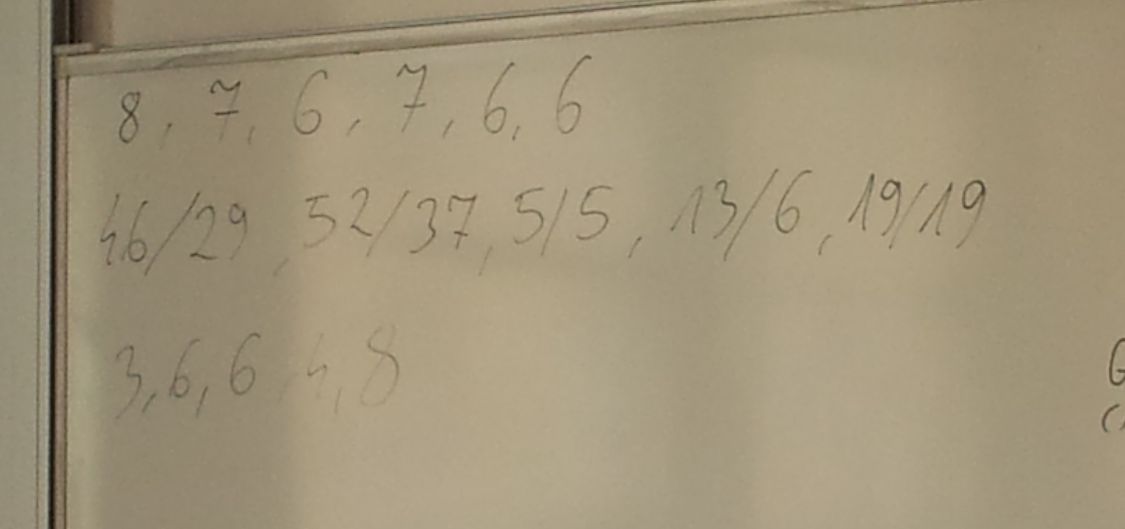 8, 7, 6, 7, 6, 6
46/29, 52/37, 5/5, 13/6, 19/19
3, 6, 6, 4, 8